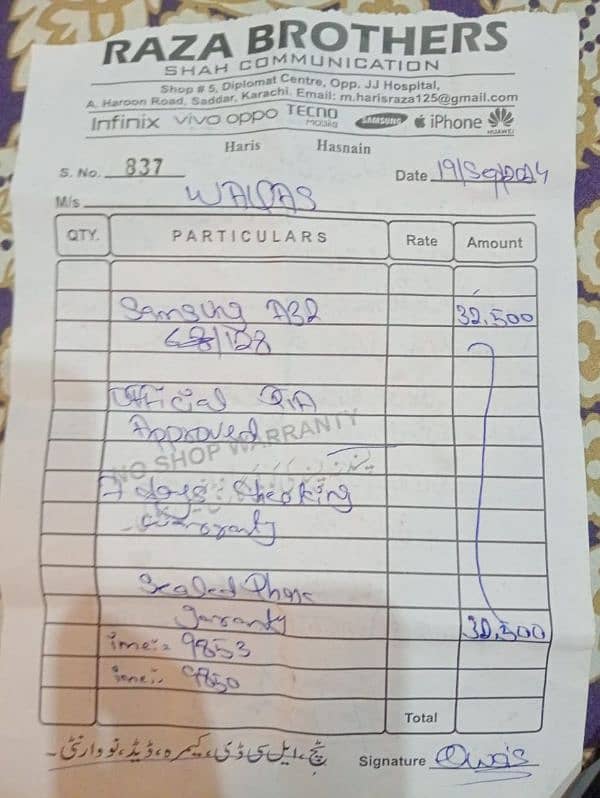 RAZA BROTHERS
SHAH COMMUNICATION
Shop # 5, Diplomat Centre, Opp. JJ Hospital,
A. Haroon Road, Saddar, Karachi. Email: m.harisraza125@gmail.com
Infinix vivo oppo TECNO mobile SAMSUNG iPhone HUAWEI
Haris Hasnain
S. No. 837 Date 19/Sep/2024
M/s WALDAS
QTY. PARTICULARS Rate Amount
Samsung A32 32,500
6GB/128
Official PTA
Approved
NO SHOP WARRANTY
7 days Checking
warranty
Sealed Phone
garanty 32,500
imei:= 9853
imei:. 9850
Total
پٹچ، ایل سی ڈی، کیمرہ، ڈیڈ، نو وارنٹی۔
Signature Owais